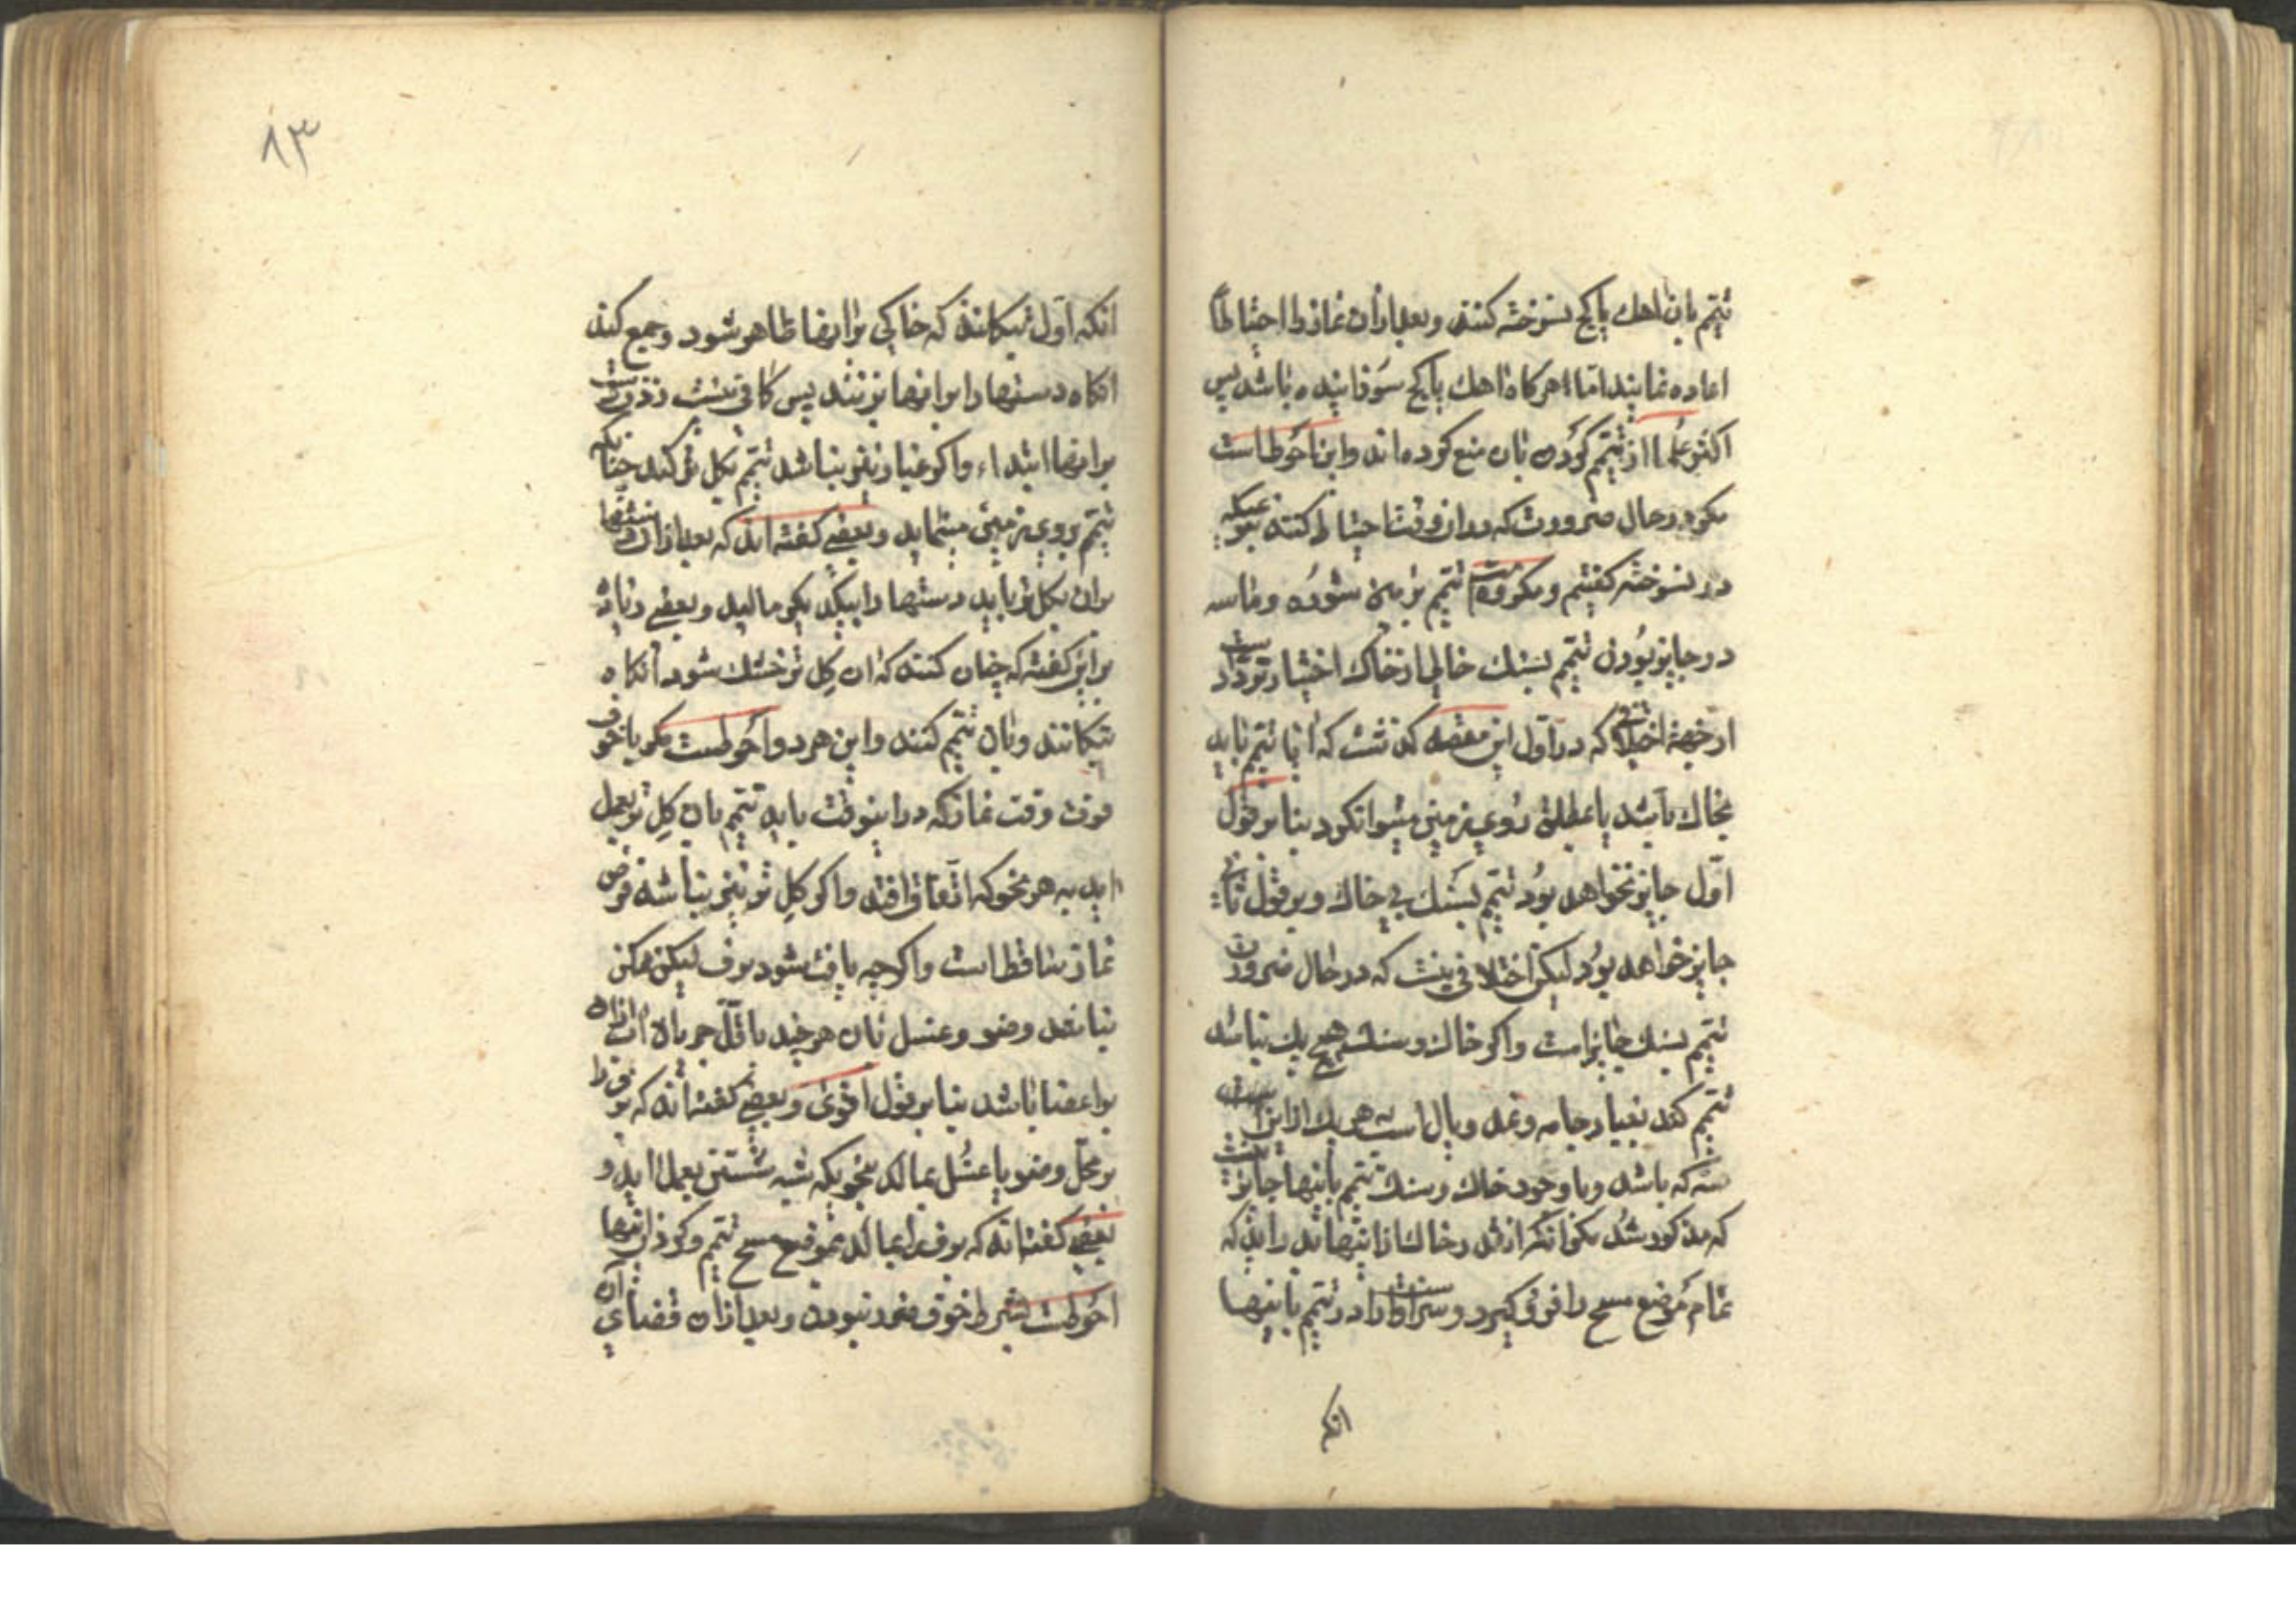 تیمم بان اهك یا کچ نسوخته کنند و بعد ازان نماز را احتیاطا
اعاده نمایند اما هر کاه اهك یا کچ سوزانیده باشد پس
اکثر علما از تیمم کردن بان منع کرده اند و این احوط است
مکر در حال ضرورت که دران وقت احتیاط کنند بنحویکه
در نسوخته کفتیم و مکروهست تیمم بزمین شوره و ماسه
در جایز بودن تیمم بسنك خالی از خاك اختیارا تردد است
از جهة اختلافی که در اول این مقصد کذشت که ایا تیمم باید
بخاك باشد یا بمطلق روی زمین میتوان کرد بنا بر قول
اول جایز نخواهد بود تیمم بسنك بی خاك و بر قول ثانی
جایز خواهد بود لیکن اختلافی نیست که در حال ضرورت
تیمم بسنك جایز است و اکر خاك و سنك هیچ یك نباشد
تیمم کند بغبار جامه و نمد و یال اسب هر یك از این
سه که باشد و با وجود خاك و سنك تیمم باینها جایز نیست
که مذکور شد مکر انکه انقدر خاك از اینها براید که
تمام موضع مسح را فرو کیرد و سزاوار است در تیمم باینها
انکه
۸۳
انکه اول بتکانند که خاکی بر انها ظاهر شود و جمع کند
انکاه دستها را بر انها بزنند پس کافی نیست زدن دست
بر انها ابتداء و اکر غبار نیز نباشد تیمم بکل تر کند چنانکه
تیمم بروی زمین مینماید و بعضی کفته اند که بعد از ان دستها
بران بکل تر باید دستها را بیکدیکر مالید و بعضی زیاده
بر این کفته که چنان کنند که ان کل تر خشك شود انکاه
بتکانند و بان تیمم کنند و این هر دو احوطست مکر با خوف
فوت وقت نماز که در اینوقت باید تیمم بان کل تر بعمل
اید به هر نحو که اتفاق افتد و اکر کل تر نیز نباشد فرض
نماز ساقط است و اکرچه یافت شود برف لیکن ممکن
نباشد وضو و غسل بان هر چند باقل جریان اب ازان
بر اعضا باشد بنا بر قول اقوی و بعضی کفته اند که برف را
بر محل وضو یا غسل بمالد بنحویکه شبه شستن بعمل اید و
بعضی کفته اند که برف را بمالد بموضع مسح تیمم و کردن اینها
احوطست بشرط خوف ضرر نبودن و بعد ازان قضای ان